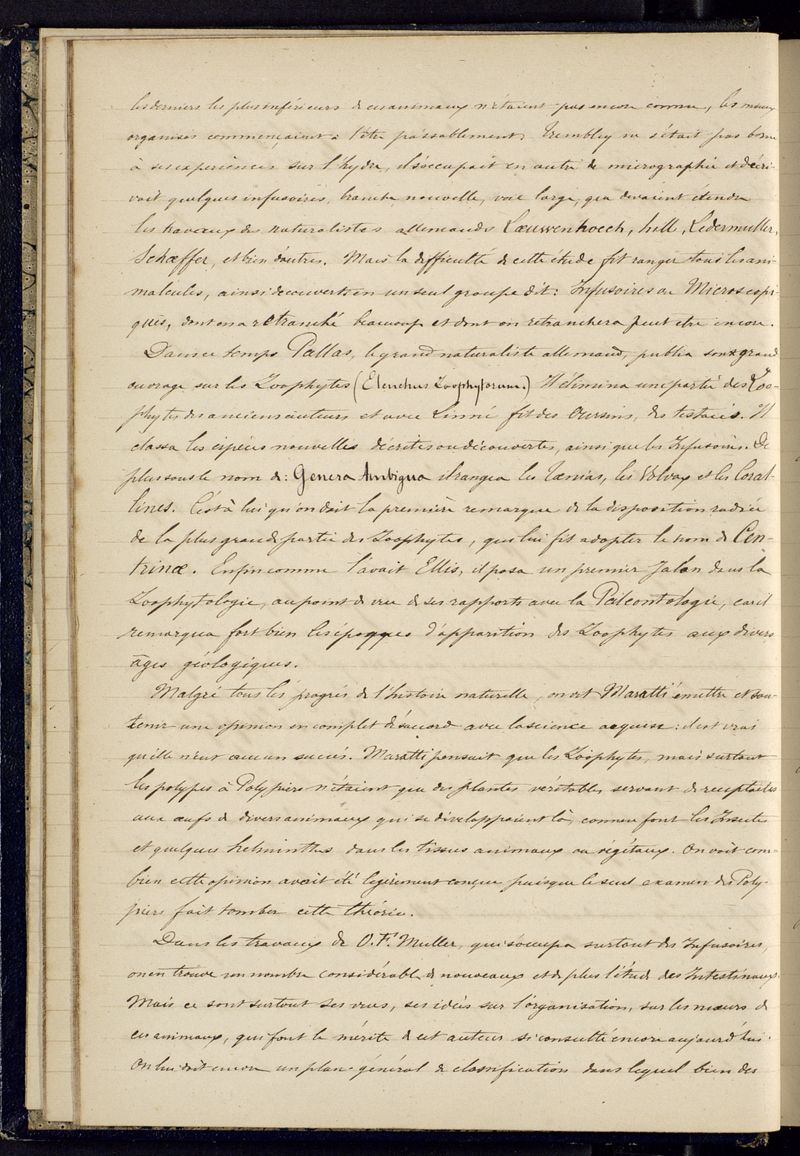 les derniers les plus inférieurs de ces animaux n'étaient pas encore connus, les mieux
organisés commençaient à l'être passablement. Trembley ne s'était pas borné
à ses expériences sur l'hydre, il s'occupait en outre de micrographie et décri-
vait quelques infusoires, branche nouvelle, voie large, que devaient étendre
les travaux des naturalistes allemands Lœuwenhoech, hill, Ledermuller,
Schæffer, et bien d'autres. Mais la difficulté de cette étude fit ranger tous les ani-
malcules, ainsi découverts en un seul groupe dit: Infusoires ou Microscopi-
ques, dont on a retranché beaucoup et dont on retranchera peut être encore.
Dans ce temps Pallas, le grand naturaliste allemand, publia son grand
ouvrage sur les Zoophytes (Elenchus Zoophytorum.) Il élimina une partie des Zoo-
phytes des anciens auteurs et avec Linné fit des Oursins, des testacés. Il
classa les espèces nouvelles décrites ou découvertes, ainsi que les Infusoires. De
plus sous le nom de: Genera Ambigua il rangea les Tænias, les Volvox et les Coral-
lines. C'est à lui qu'on doit la première remarque de la disposition radiée
de la plus grande partie des Zoophytes, que lui fit adopter le nom de Cen-
trinæ. Enfin comme l'avait Ellis, il posa un premier Jalon dans la
Zoophytologie, au point de vue de ses rapports avec la Paléontologie, car il
remarqua fort bien les époques d'apparition des Zoophytes aux divers
âges géologiques.
Malgré tous les progrès de l'histoire naturelle, on vit Maratti émettre et sou-
tenir une opinion en complet désaccord avec la science acquise: il est vrai
qu'elle n'eut aucun succès. Maratti pensait que les Zoophytes, mais surtout
les polypes à Polypiers n'étaient que des plantes véritables servant de receptacles
aux œufs de divers animaux qui se développaient là, comme font les Insectes
et quelques helminthes dans les tissus animaux ou végétaux. On voit com-
bien cette opinion avait été légèrement conçue puisque le seul examen des Poly-
piers fait tomber cette théorie.
Dans les travaux de O. F. Muller, qui s'occupa surtout des Infusoires,
on en trouve un nombre considérable de nouveaux et de plus l'étude des Intestinaux.
Mais ce sont surtout ses vues, ses idées sur l'organisation, sur les mœurs de
ces animaux, qui font le mérite de cet auteur si consulté encore aujourd'hui.
On lui doit encore un plan général de classification dans lequel bien des